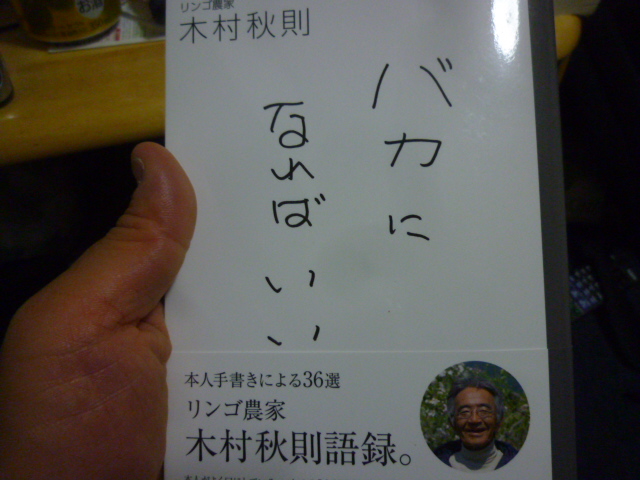 リンゴ農家
木村秋則
バカに
なればいい
本人手書きによる36選
リンゴ農家
木村秋則語録。
お酒